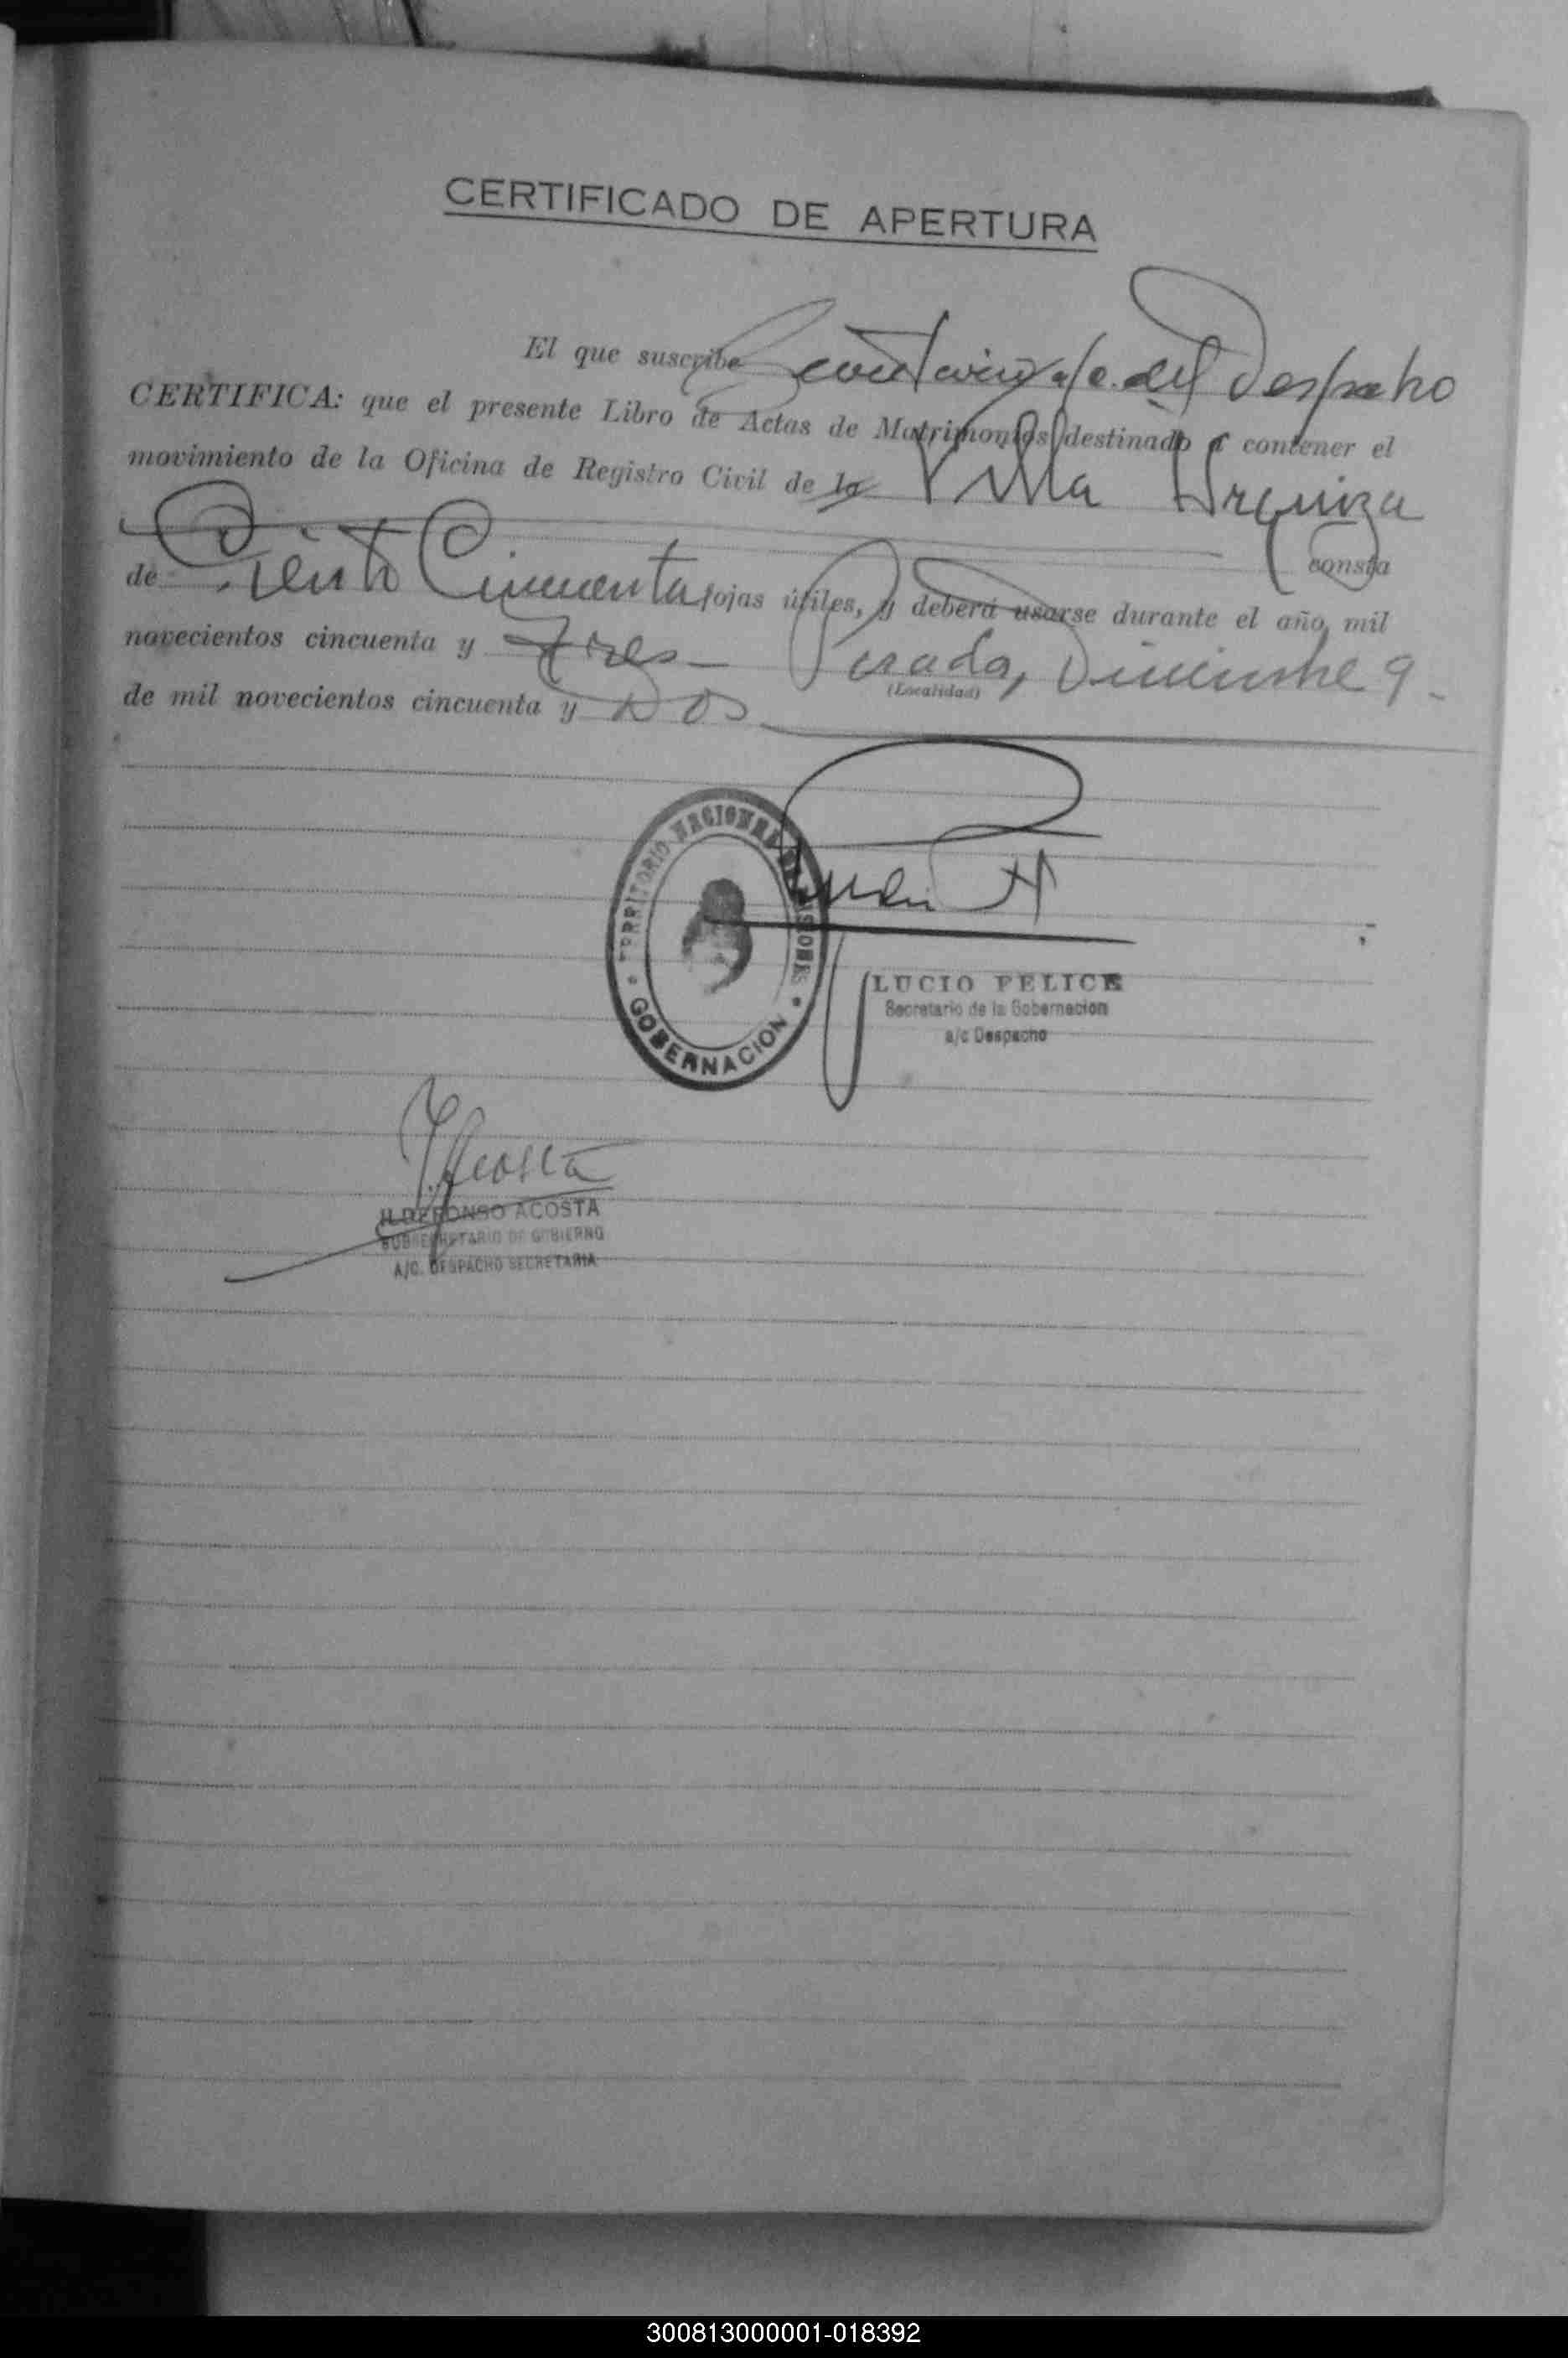 CERTIFICADO DE APERTURA
El que suscribe Secretario a/c. del Despacho
CERTIFICA: que el presente Libro de Actas de Matrimonios destinado a contener el
movimiento de la Oficina de Registro Civil de la Villa Urquiza
consta
de Ciento Cincuenta fojas útiles, y deberá usarse durante el año mil
novecientos cincuenta y tres Posadas, Diciembre 9
(Localidad)
de mil novecientos cincuenta y Dos
TERRITORIO NACIONAL DE MISIONES
GOBERNACION
LUCIO FELICE
Secretario de la Gobernacion
a/c Despacho
Acosta
ILDEFONSO ACOSTA
SUBSECRETARIO DE GOBIERNO
A/C. DESPACHO SECRETARIA
300813000001-018392